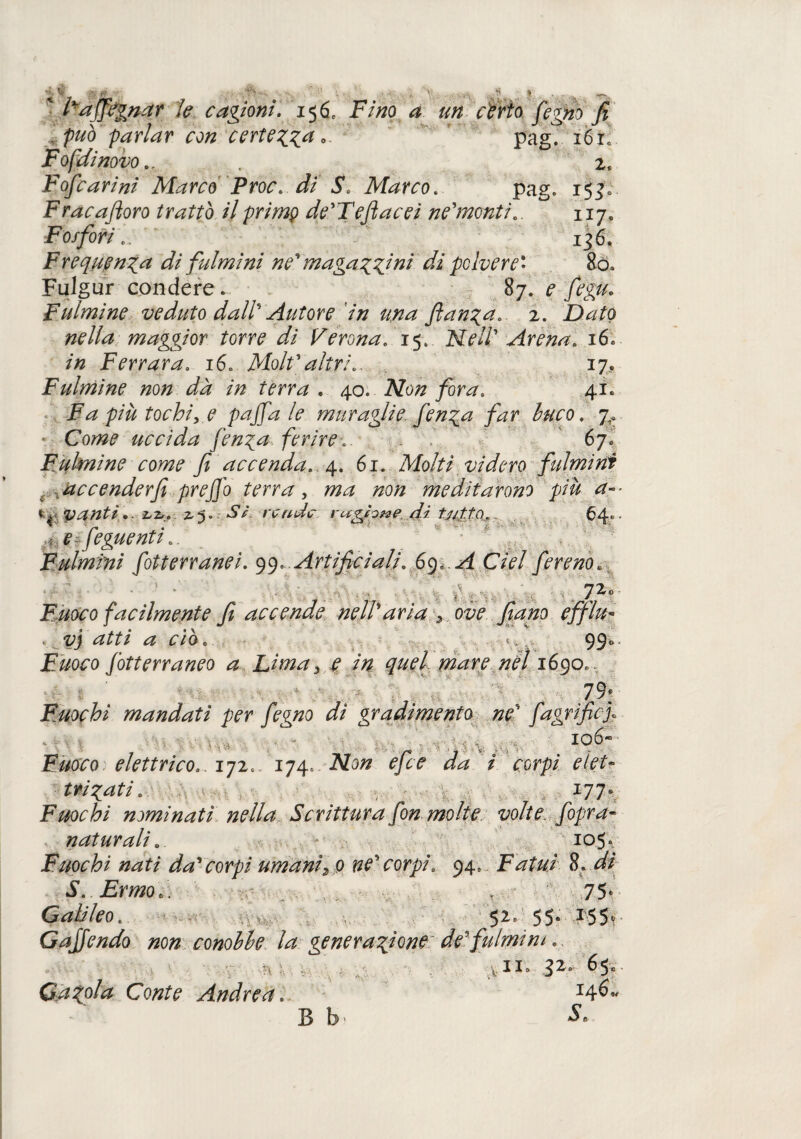 l'assegnar le cagioni. 156. Fino a un certo segno si
può parlar con certezza. pag. 161.
Fosdinovo. 2.
Foscarini Marco Proc. di S. Marco. pag. 153.
Fracastoro trattò il primo de'Testacei ne'monti. 117.
Fosfori. 136.
Frequenza di fulmini ne' magazzini di polvere: 80.
Fulgur condere. 87. e segu.
Fulmine veduto dall' Autore in una stanza. 2. Dato
nella maggior torre di Verona. 15. Nell' Arena. 16.
in Ferrara. 16. Molt'altri. 17.
Fulmine non dà in terra. 40. Non fora. 41.
Fa più tochi, e passa le muraglie senza far buco. 7.
Come uccida senza ferire. 67.
Fulmine come si accenda. 4. 61. Molti videro fulmini
accendersi presso terra, ma non meditarono più a-
vanti. 22. 25. Si rende ragione di tutto. 64.
e seguenti.
Fulmini sotterranei. 99. Artificiali. 69. A Ciel sereno.
72.
Fuoco facilmente si accende nell'aria, ove siano efflu-
vj atti a ciò. 99.
Fuoco sotterraneo a Lima, e in quel mare nel 1690.
79.
Fuochi mandati per segno di gradimento ne' sagrificj.
106-
Fuoco elettrico. 172. 174. Non esce da i corpi elet-
trizati. 177.
Fuochi nominati nella Scrittura son molte volte sopra-
naturali. 105.
Fuochi nati da'corpi umani, o ne'corpi. 94. Fatui 8. di
S. Ermo. 75.
Galileo. 52. 55. 155.
Gassendo non conobbe la generazione de'fulmini.
11. 32. 65.
Gazola Conte Andrea. 146.
B b S.